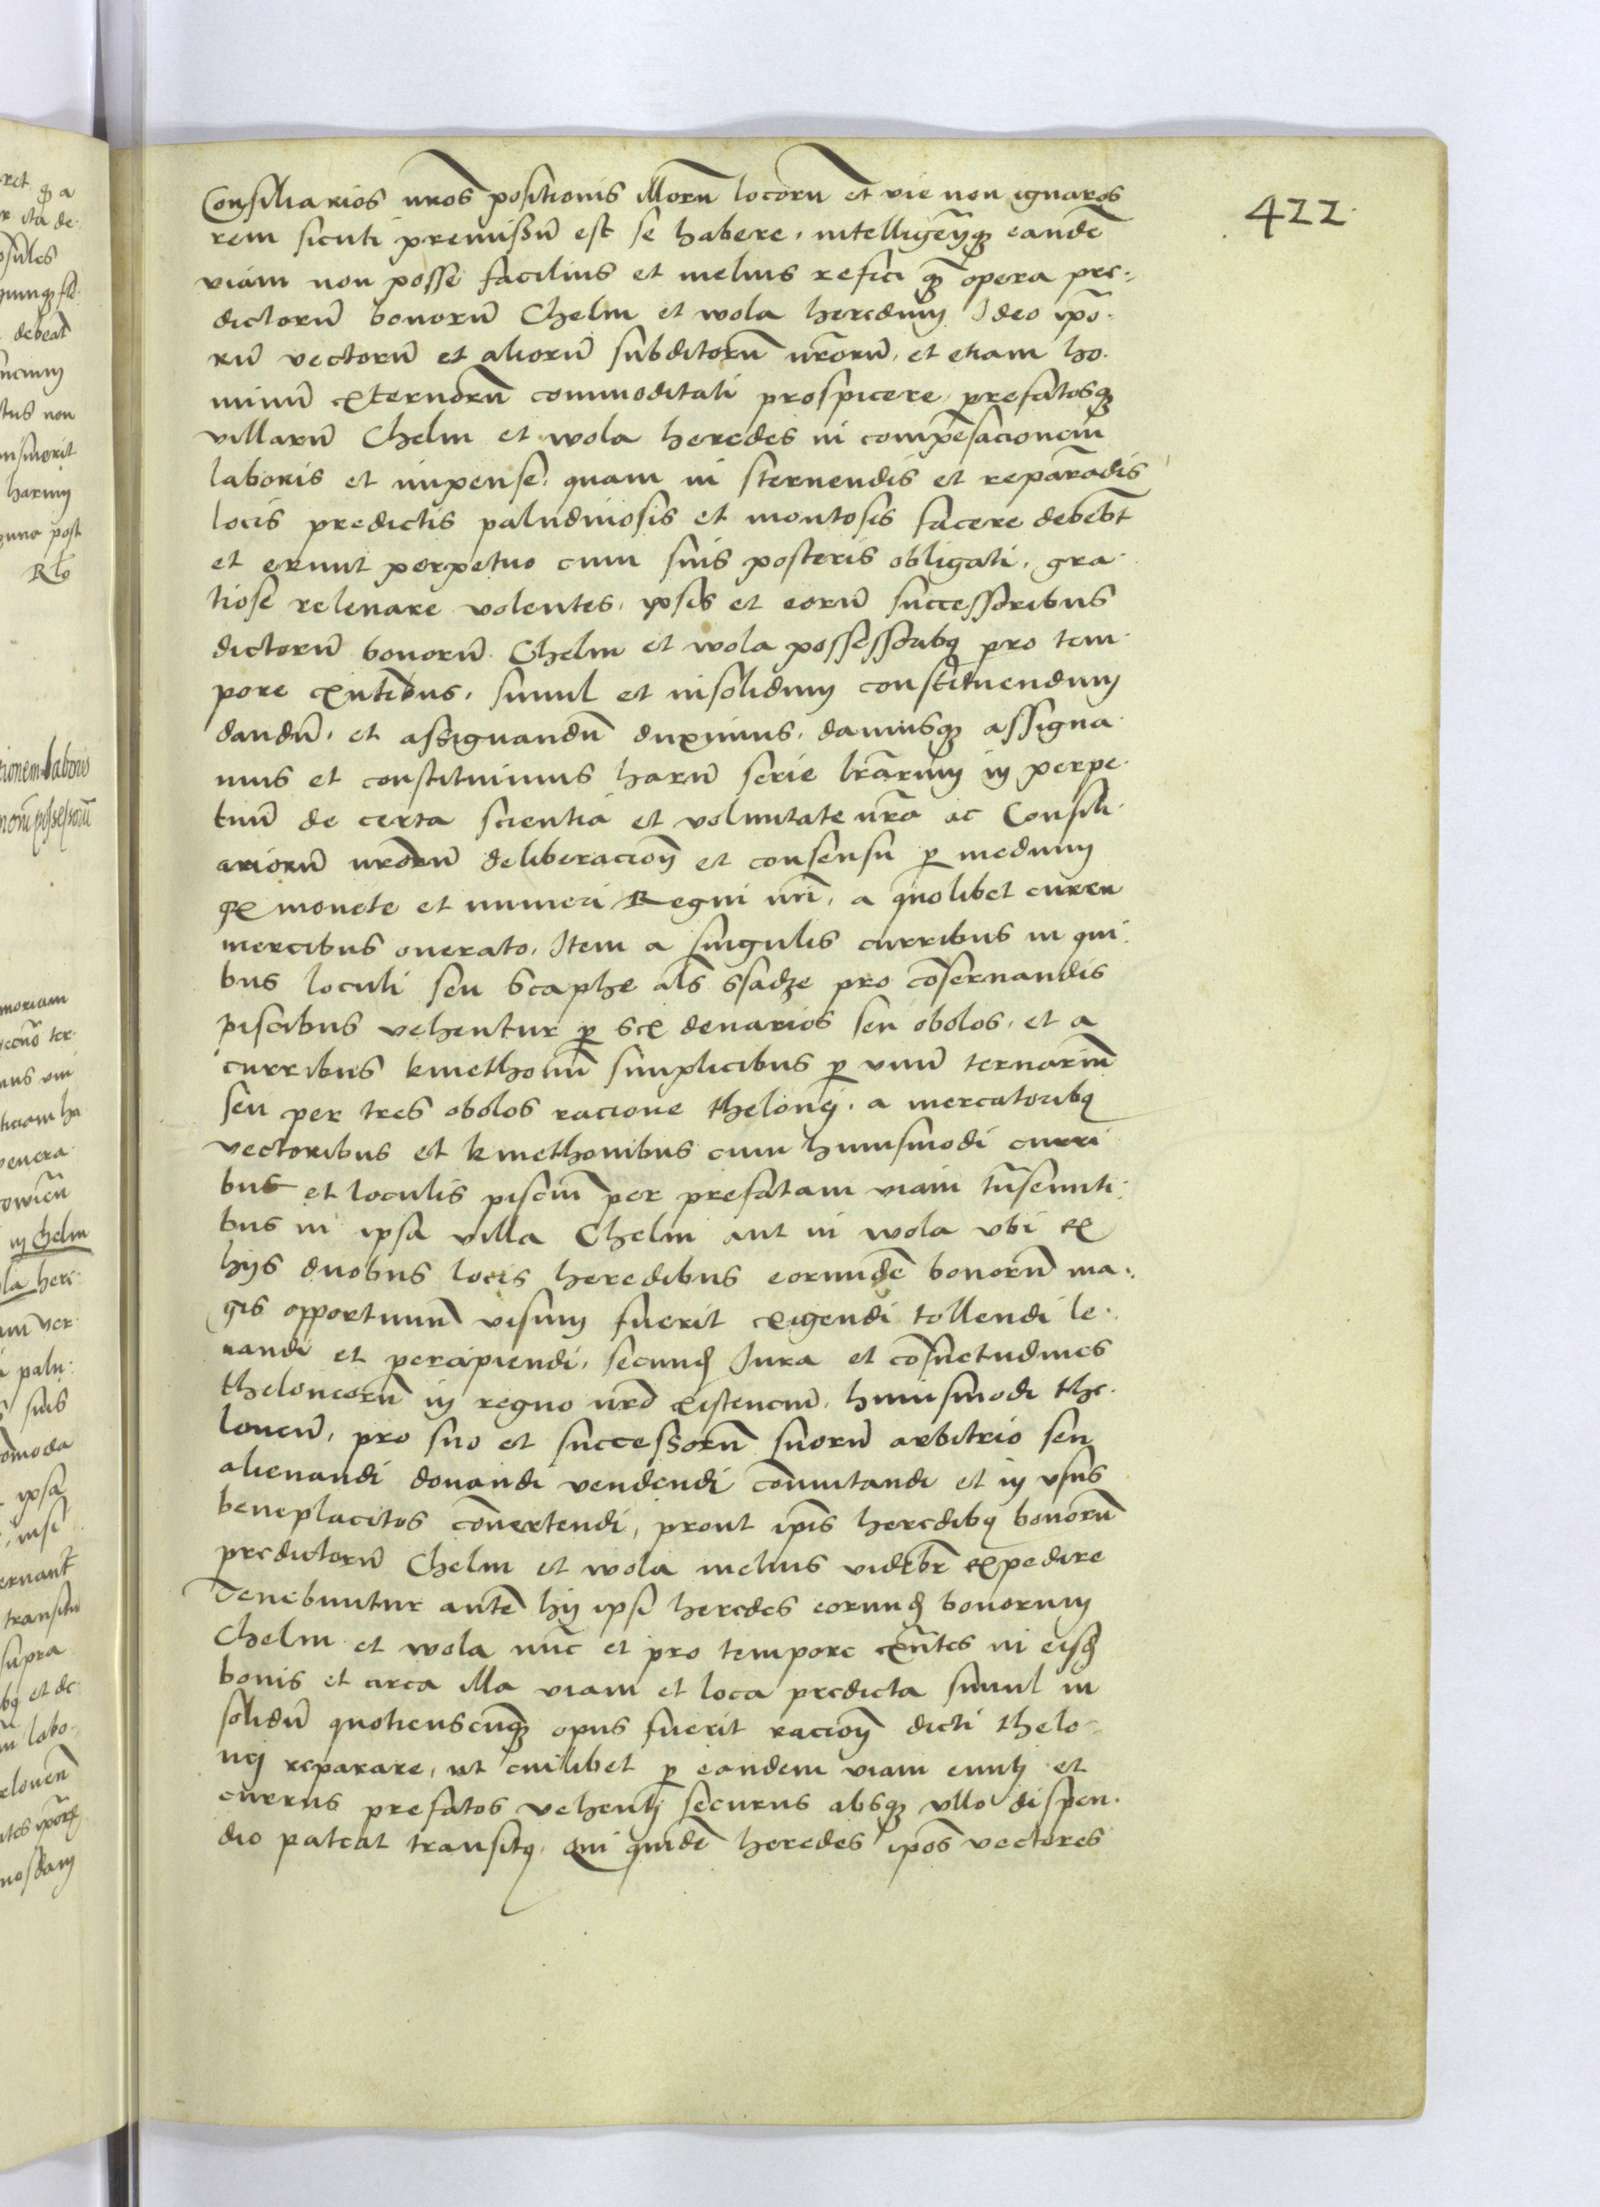 422
Consiliarios nr̃os positionis illorũ locorũ et vie non ignaros
rem sicuti premissũ est se habere, intelligen̄sq₃ eandẽ
viam non posse facilius et melius refici q̃ opera pre-
dictorũ bonorũ Chelm et wola heredum Ideo ip̃o-
rũ vectorũ et aliorũ subditorũ nr̃orũ, et etiam ho-
minũ externorũ commoditati prospicere, prefatosq₃
villarũ Chelm et wola heredes in compẽsacionem
laboris et impense, quam in sternendis et reparãdis
locis predictis paludinosis et montosis facere debebt̃
et erunt perpetuo cum suis posteris obligati, gra-
tiose relevare volentes, ipsis et eorũ successoribus
dictorũ bonorũ Chelm et wola possessoribq₃ pro tem-
pore exñtibus, simul et insolidum constituendum
dandũ, et assignandũ duximus, damusq₃ assigna-
mus et constituimus harũ serie lr̃arum in perpe-
tuũ de certa scientia et voluntate nr̃a ac Consili-
ariorũ nr̃orũ deliberacion̄ et consensu p̱ medium
gr̃ monete et numeri Regni nr̃i, a quolibet curru
mercibus onerato, Item a singulis curribus in qui-
bus loculi seu Scaphe al̃s Ssadze pro cõservandis
piscibus vehentur p̱ sex denarios seu obolos, et a
curribus kmethonũ simplicibus p̱ vnũ ternariũ
seu per tres obolos racione thelonei, a mercatoribq₃
vectoribus et kmethonibus cum huiusmodi curri-
bus et loculis pisciũ per prefatam viam trãseunti-
bus in ipsa villa Chelm aut in wola vbi ex
hijs duobus locis heredibus eorundẽ bonorũ ma-
gis opportunũ visum fuerit exigendi tollendi le-
vandi et percipiendi, secund̃ Jura et cõsuetudines
theloneorũ in regno nr̃o existenciũ, huiusmodi the-
loneũ, pro suo et successorũ suorũ arbitrio seu
alienandi donandi vendendi cõmutandi et in vsus
beneplacitos cõvertendi, prout ip̃is heredibq₃ bonorũ
predictorũ Chelm et wola melius videbr̃ expedire
Tenebuntur autẽ hij ipsi heredes eorund̃ bonorum
Chelm et wola nũc et pro tempore exñtes in eisd̃
bonis et circa illa viam et loca predicta simul in
solidũ quotienscũq₃ opus fuerit racion̄ dicti thelo-
nej reparare, ut cuilibet p̱ eandem viam eunti et
currus prefatos vehentj securus absq₃ vllo dispen-
dio pateat transitq₃, Qui quidẽ heredes ip̃os vectores